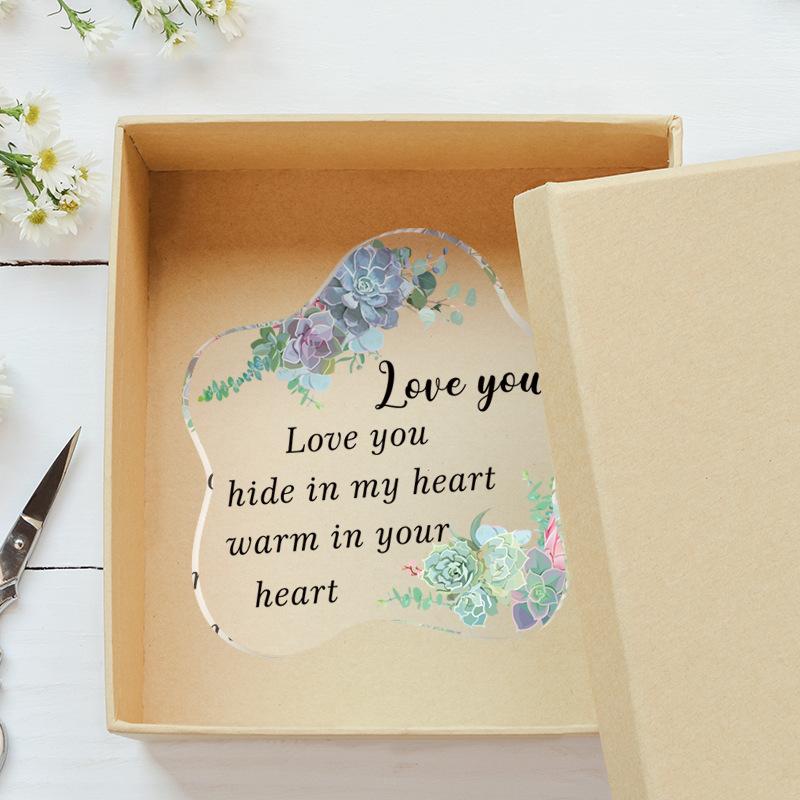 Love you
Love you
hide in my heart
warm in your
heart